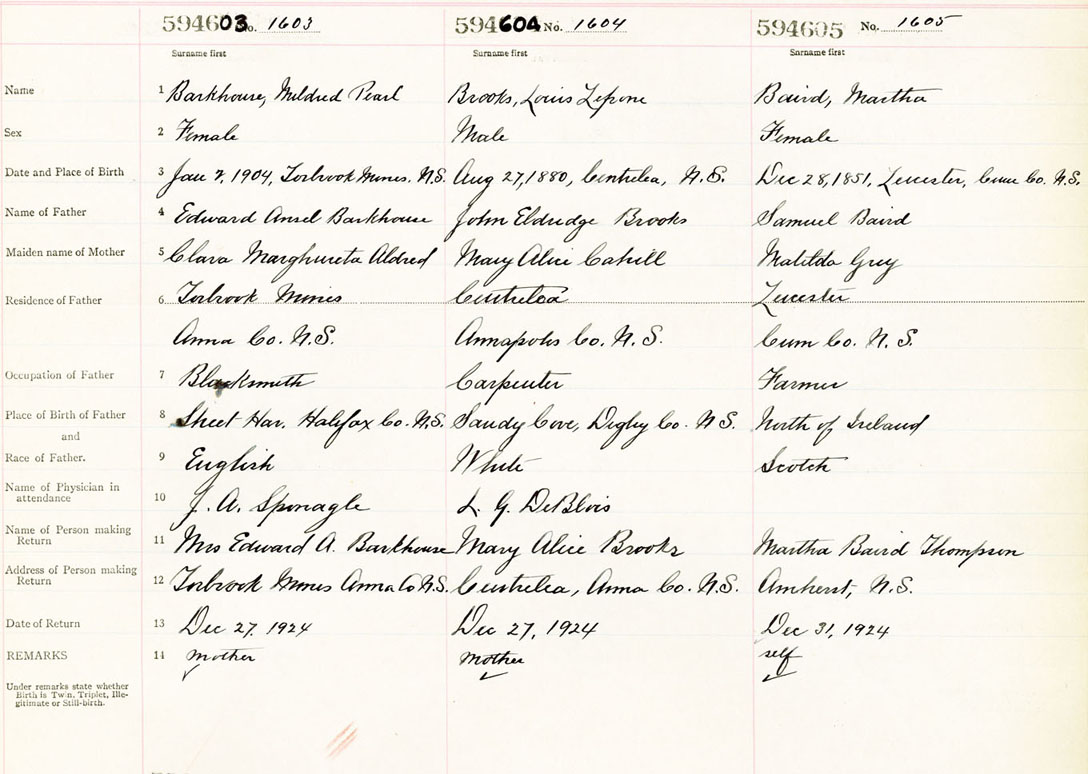 594603 No. 1603 594604 No. 1604 594605 No. 1605
Surname first Surname first Surname first
Name 1 Barkhouse, Mildred Pearl Brooks, Louis Baird, Martha
Sex 2 Female Male Female
Date and Place of Birth 3 Jan 2, 1904, Torbrook Mines. N.S. Aug 27, 1880, Centrelea, N.S. Dec 28, 1851, Leicester, Cum Co. N.S.
Name of Father 4 Edward Ansel Barkhouse John Eldredge Brooks Samuel Baird
Maiden name of Mother 5 Clara Marghureta Aldred Mary Alice Cahill Matilda Grey
Residence of Father 6 Torbrook Mines Centrelea Leicester
Anna Co. N.S. Annapolis Co. N.S. Cum Co. N.S.
Occupation of Father 7 Blacksmith Carpenter Farmer
Place of Birth of Father 8 Sheet Har. Halifax Co. N.S. Sandy Cove, Digby Co. N S. North of Ireland
and
Race of Father. 9 English White Scotch
Name of Physician in attendance 10 J. A. Sponagle L. G. DeBlois
Name of Person making Return 11 Mrs Edward A. Barkhouse Mary Alice Brooks Martha Baird Thompson
Address of Person making Return 12 Torbrook Mines Anna Co N.S. Centrelea, Anna Co. N.S. Amherst, N.S.
Date of Return 13 Dec 27. 1924 Dec 27, 1924 Dec 31, 1924
REMARKS 14 mother mother self
Under remarks state whether
Birth is Twin, Triplet, Ille-
gitimate or Still-birth.